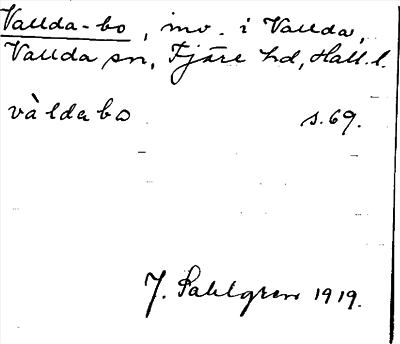 Vallda-bo, inv. i Vallda,
Vallda sn, Fjäre hd, Hall. l.
vàldabo s. 69.
J. Sahlgren 1919.